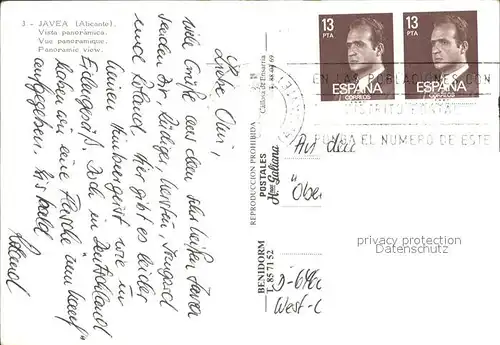 3.- JAVEA (Alicante).
Vista panorámica.
Vue panoramique.
Panoramic view.
Liebe Omi!
viele Grüße aus dem sehr heißen Javea
senden Dir
und Roland. Hier gibt es leider
keinen Himbeergeist wie im
Doch in Deutschland
haben wir eine Flasche
aufgegeben. Bis bald
Roland
REPRODUCCION PROHIBIDA
Callosa de Ensarriá
POSTALES
Hnos Galiana
BENIDORM
T. 85 71 52
13
PTA
ESPAÑA
CORREOS
13
PTA
ESPAÑA
CORREOS
EN LAS POBLACIONES CON
DISTRITO POSTAL
PONGA EL NUMERO DE ESTE
An die
Ober
West-
privacy protection
www.ansichtskarten-center.de